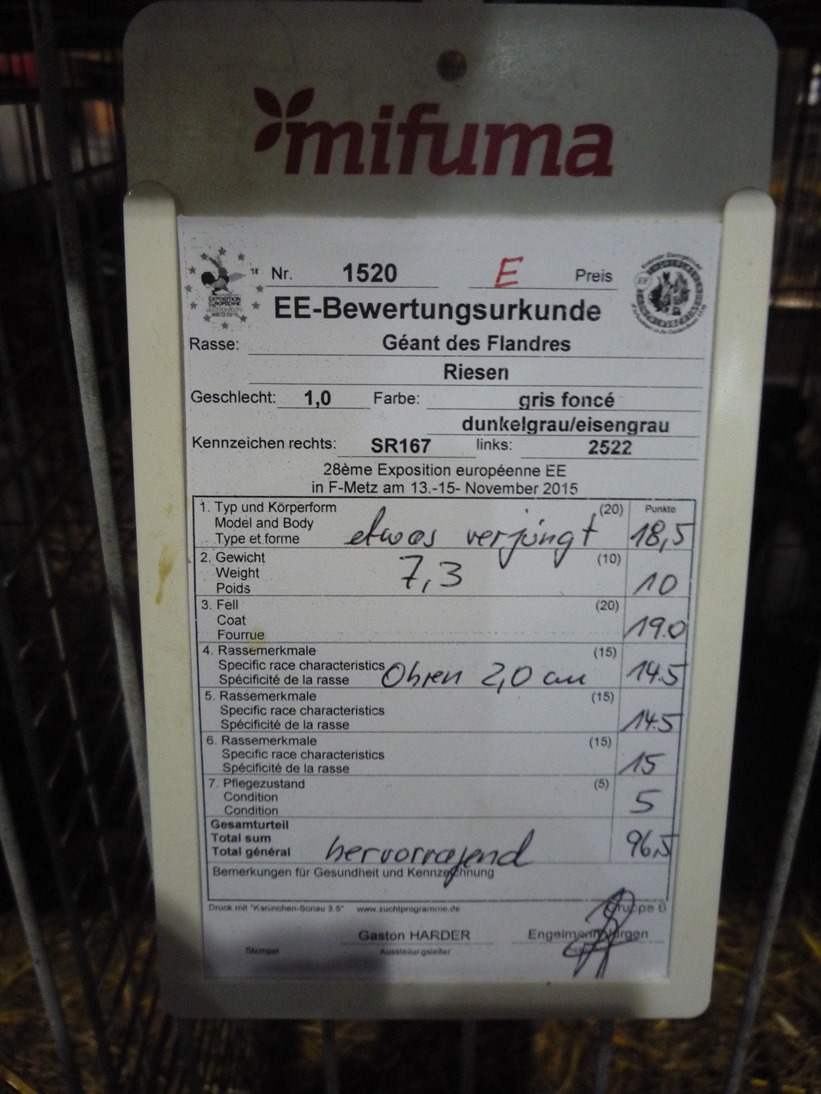 mifuma
Nr. 1520 E Preis
EE-Bewertungsurkunde
Rasse: Géant des Flandres
Riesen
Geschlecht: 1,0 Farbe: gris foncé
dunkelgrau/eisengrau
Kennzeichen rechts: SR167 links: 2522
28ème Exposition européenne EE
in F-Metz am 13.-15- November 2015
1. Typ und Körperform (20) Punkte
Model and Body
Type et forme etwas verjüngt 18,5
2. Gewicht (10)
Weight 7,3
Poids 10
3. Fell (20)
Coat
Fourrue 19.0
4. Rassemerkmale (15)
Specific race characteristics Ohren 2,0 cm 14.5
Spécificité de la rasse
5. Rassemerkmale (15)
Specific race characteristics
Spécificité de la rasse 14.5
6. Rassemerkmale (15)
Specific race characteristics
Spécificité de la rasse 15
7. Pflegezustand (5)
Condition 5
Condition
Gesamturteil
Total sum 96,5
Total général hervorragend
Bemerkungen für Gesundheit und Kennzeichnung
Druck mit "Kaninchen-Schau 3.5" www.zuchtprogramme.de Gruppe 6
Gaston HARDER Engelmann Jürgen
Stempel Ausstellungsleiter